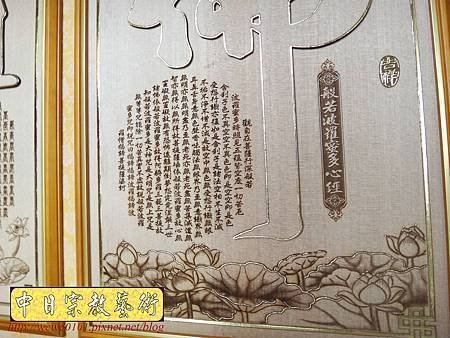 佛
吉祥
般若波羅蜜多心經
觀自在菩薩行深般若
波羅蜜多時照見五蘊皆空度一切苦厄
舍利子色不異空空不異色色即是空空即是色
受想行識亦復如是舍利子是諸法空相不生不滅
不垢不淨不增不減是故空中無色無受想行識無眼
耳鼻舌身意無色聲香味觸法無眼界乃至無意識界無
無明亦無無明盡乃至無老死亦無老死盡無苦集滅道無
智亦無得以無所得故菩提薩埵依般若波羅蜜多故心無
罣礙無罣礙故無有恐怖遠離顛倒夢想究竟涅槃三世
諸佛依般若波羅蜜多故得阿耨多羅三藐三菩提故
知般若波羅蜜多是大神咒是大明咒是無上咒是
無等等咒能除一切苦真實不虛故說般若波羅
蜜多咒即說咒曰揭諦揭諦波羅揭諦波
羅僧揭諦菩提薩婆訶
中日宗教藝術